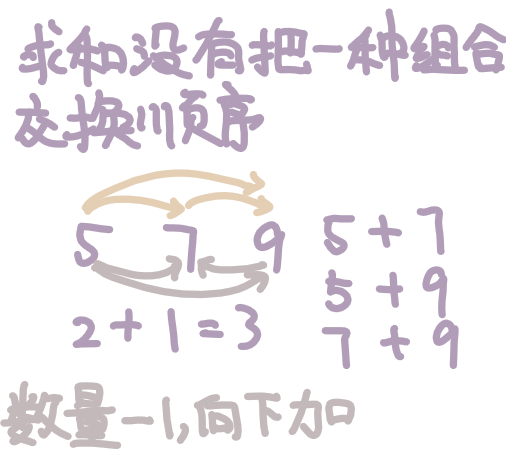 求和没有把一种组合
交换顺序
5 7 9
5+7
5+9
7+9
2+1=3
数量-1,向下加